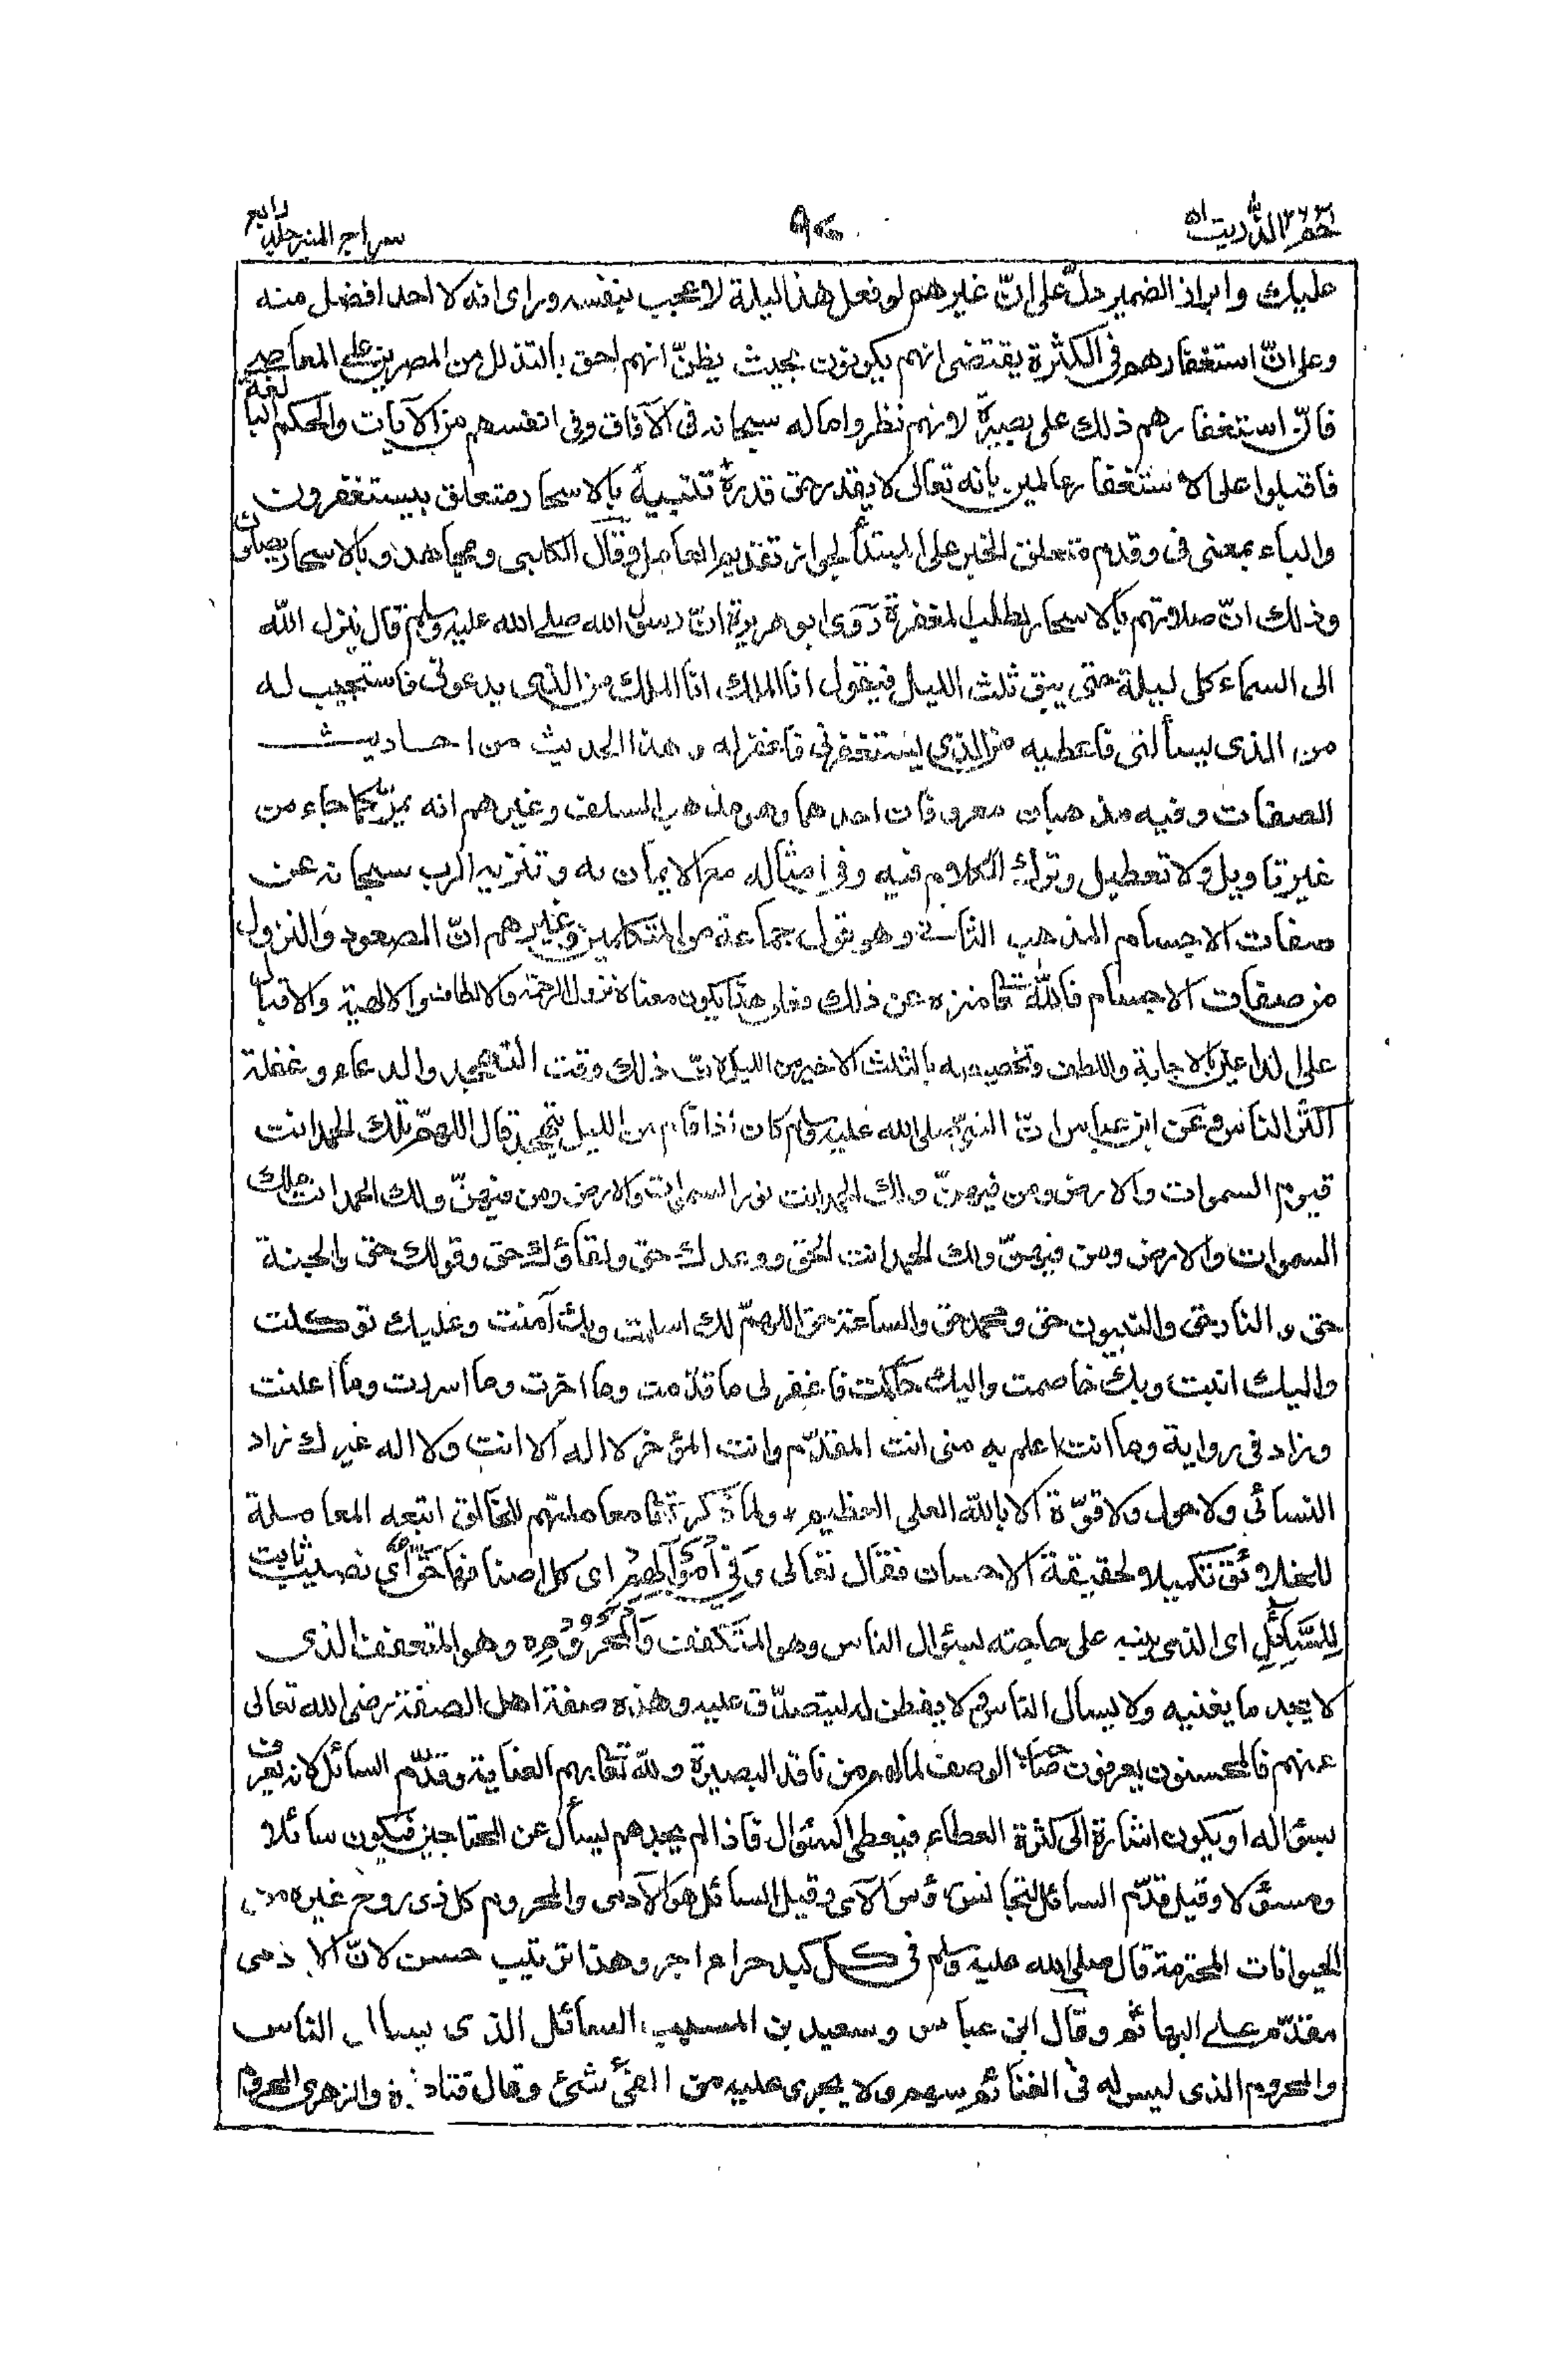 حم ٢٦ الذّٰريٰت ٥١
٩٤
سراج المنير جلد رابع
عليك وابراز الضمير دلّ على انّ غيرهم لو فعل هذا ليلة لاعجب بنفسه وراى انه لا احد افضل منه
وعلى انّ استغفارهم فى الكثرة يقتضى انهم يكونون بحيث يظنّ انهم احق بالتذلل من المصرين على المعاصى
فانّ استغفارهم ذلك على بصيرة لانهم نظروا ما له سبحانه فى الآفاق وفى انفسهم من الآيات والحكم البالغة
فاقبلوا على الاستغفار عالمين بانه تعالى لا يقدر حق قدره تنبيه بالاسحار متعلق بيستغفرون
والباء بمعنى فى وقدم متعلق الخبر على المبتدأ لجواز تقديم العامل وقال الكلبى ومجاهد وبالاسحار يصلون
وذلك انّ صلاتهم بالاسحار لطلب المغفرة روى ابو هريرة انّ رسول الله صلى الله عليه وسلم قال ينزل الله
الى السماء كل ليلة حتى يبقى ثلث الليل فيقول انا الملك انا الملك من الذى يدعونى فاستجيب له
من الذى يسألنى فاعطيه من الذى يستغفرنى فاغفر له وهذا الحديث من احاديث
الصفات وفيه مذهبان معروفان احدهما وهو مذهب السلف وغيرهم انه يمرّ كما جاء من
غير تاويل ولا تعطيل وترك الكلام فيه وفى امثاله مع الايمان به وتنزيه الرب سبحانه عن
صفات الاجسام المذهب الثانى وهو قول جماعة من المتكلمين وغيرهم انّ الصعود والنزول
من صفات الاجسام فالله تعالى منزه عن ذلك فعلى هذا يكون معناه نزول الرحمة والالطاف الالهية والاقبال
على الداعين بالاجابة واللطف وتخصيصه بالثلث الاخير من الليل لانّ ذلك وقت التهجد والدعاء وغفلة
اكثر الناس وعن ابن عباس انّ النبىّ صلى الله عليه وسلم كان اذا قام من الليل يتهجد قال اللهمّ لك الحمد انت
قيوم السموات والارض ومن فيهنّ ولك الحمد انت نور السموات والارض ومن فيهنّ ولك الحمد انت ملك
السموات والارض ومن فيهنّ ولك الحمد انت الحق ووعدك حق ولقاؤك حق وقولك حق والجنة
حق والنار حق والنبيون حق ومحمد حق والساعة حق اللهمّ لك اسلمت وبك آمنت وعليك توكلت
واليك انبت وبك خاصمت واليك حاكمت فاغفر لى ما قدّمت وما اخرت وما اسررت وما اعلنت
وزاد فى رواية وما انت اعلم به منى انت المقدّم وانت المؤخر لا اله الا انت ولا اله غيرك زاد
النسائى ولا حول ولا قوّة الا بالله العلى العظيم * ولما ذكر تعالى معاملتهم للخالق اتبعه المعاملة
للخلائق تكميلا لحقيقة الاحسان فقال تعالى وَفِي أَمْوَالِهِمْ اى كل اصنافها حَقٌّ اى نصيب ثابت
لِلسَّائِلِ اى الذى ينبه على حاجته لسؤال الناس وهو المتكفف وَالْمَحْرُومِ ه وهو المتعفف الذى
لا يجد ما يغنيه ولا يسأل الناس ولا يفطن له ليتصدّق عليه وهذه صفة اهل الصفة رضى الله تعالى
عنهم فالمحسنون يعرفون صاحب الوصف لما لهم من نافذ البصيرة ولله تعالى بهم العناية وقدّم السائل لانه يعرف
بسؤاله او يكون اشارة الى كثرة العطاء فيعطى السؤال فاذا لم يجدهم يسأل عن المحتاجين فيكون سائلا
ومسؤلا وقيل قدّم السائل لتجانس رؤس الآى وقيل السائل هو الآدمى والمحروم كل ذى روح غيره من
الحيوانات المحترمة قال صلى الله عليه وسلم فى كل كبد حراء اجر وهذا ترتيب حسن لانّ الآدمى
مقدّم على البهائم وقال ابن عباس وسعيد بن المسيب السائل الذى يسأل الناس
والمحروم الذى ليس له فى الغنائم سهم ولا يجرى عليه من الفئ شئ وقال قتادة والزهرى المحروم